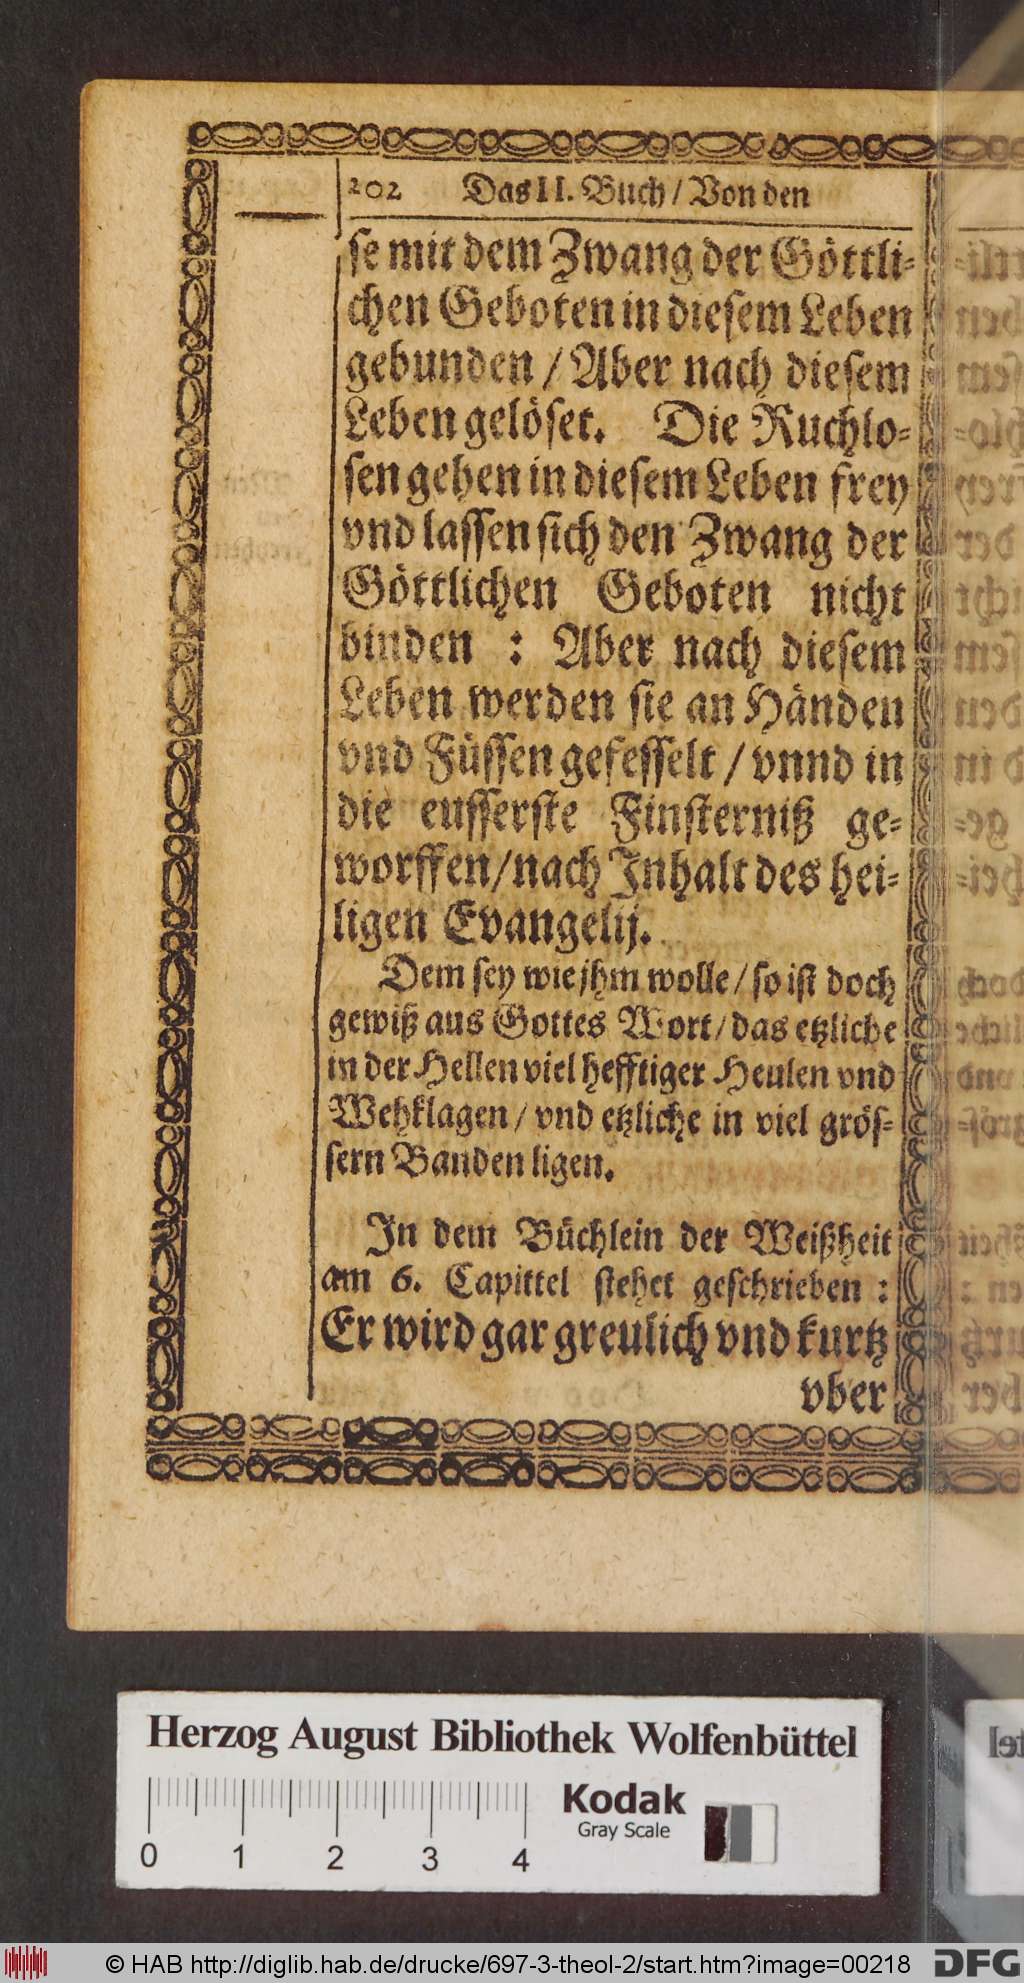 202 Das II. Buch / Von den
se mit dem Zwang der Göttli-
chen Geboten in diesem Leben
gebunden / Aber nach diesem
Leben gelöset. Die Ruchlo-
sen gehen in diesem Leben frey
vnd lassen sich den Zwang der
Göttlichen Geboten nicht
binden : Aber nach diesem
Leben werden sie an Händen
vnd Füssen gefesselt / vnnd in
die eusserste Finsterniß ge-
worffen / nach Inhalt des hei-
ligen Evangelij.
Dem sey wie jhm wolle / so ist doch
gewiß aus Gottes Wort / das etzliche
in der Hellen viel hefftiger Heulen vnd
Wehklagen / vnd etzliche in viel grös-
sern Banden ligen.
In dem Büchlein der Weißheit
am 6. Capittel stehet geschrieben :
Er wird gar greulich vnd kurtz
vber
Herzog August Bibliothek Wolfenbüttel
0 1 2 3 4
Kodak
Gray Scale
© HAB http://diglib.hab.de/drucke/697-3-theol-2/start.htm?image=00218
DFG